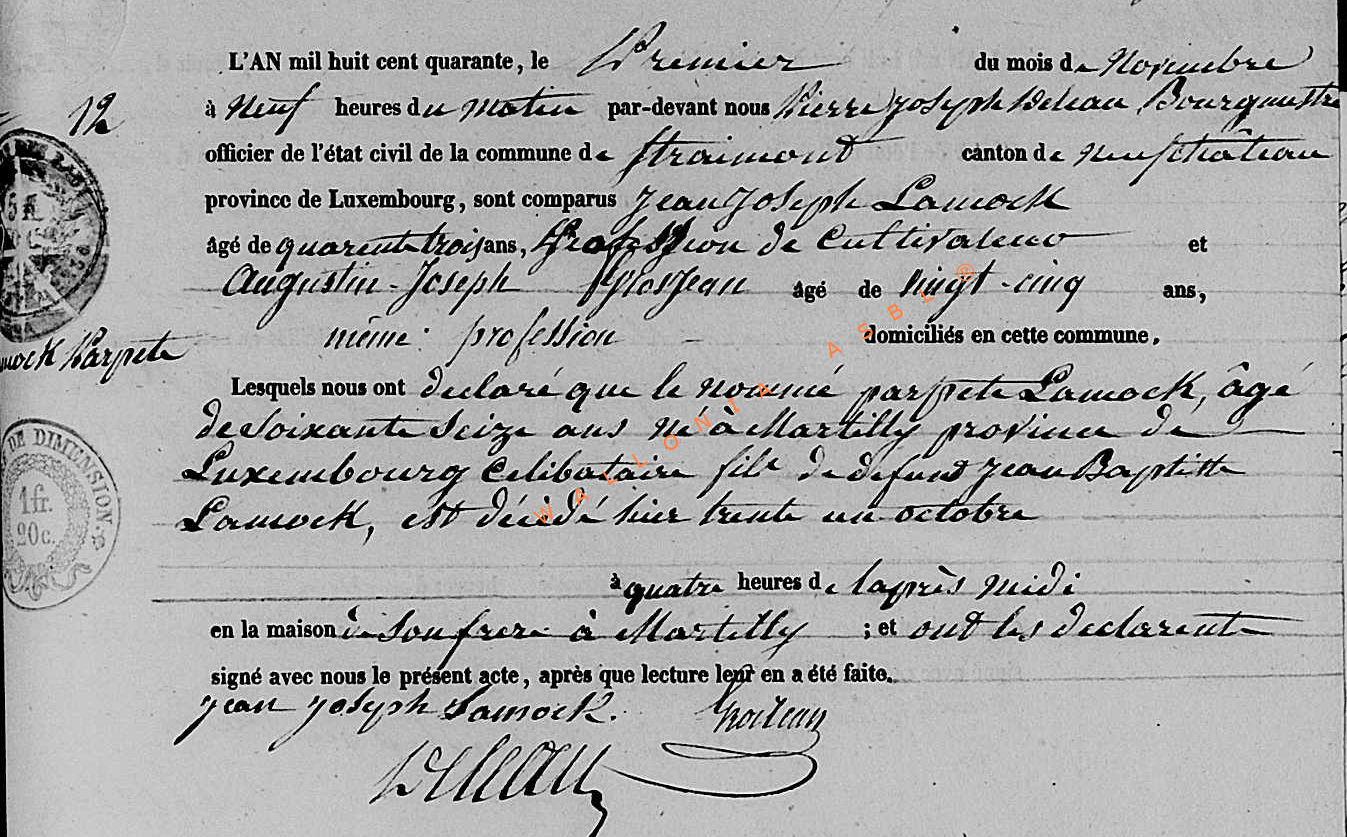 L'AN mil huit cent quarante, le Premier du mois de Novembre
12
à Neuf heures du matin par-devant nous Pierre Joseph Deleau Bourgmestre
officier de l'état civil de la commune de Straimont canton de Neufchâteau
province de Luxembourg, sont comparus Jean Joseph Lamock
âgé de quarente trois ans, Profession de Cultivateur et
Augustin-Joseph Grosjean âgé de vingt-cinq ans,
même profession domiciliés en cette commune.
Parpete
Lesquels nous ont declaré que le nommé parpete Lamock, âgé
de Soixante Seize ans né à Martilly province de
Luxembourg Celibataire fils de defunt Jean Baptiste
Lamock, est décédé hier trente un octobre
DE DIMENSION.
1 fr.
20 c.
à quatre heures de laprès midi
en la maison de Son frere à Martilly ; et ont les declarents
signé avec nous le présent acte, après que lecture leur en a été faite.
Jean Joseph Lamock. Grosjean
Deleau
WALLONIA ASBL ©